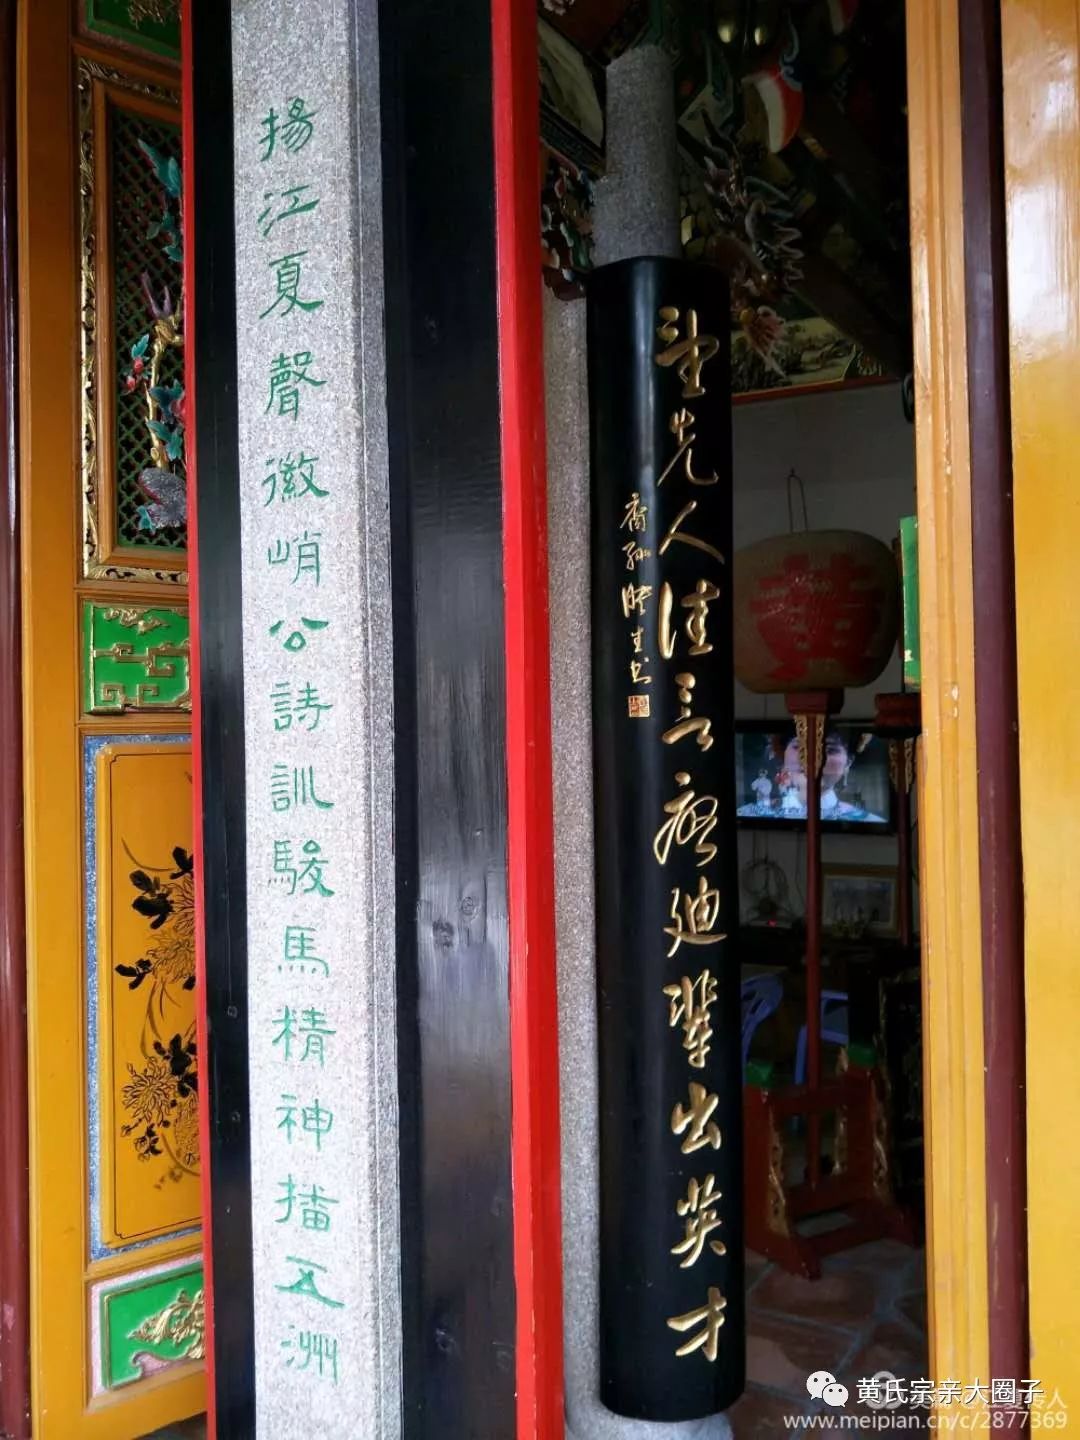 揚江夏聲徽峭公詩訓駿馬精神播五洲
先人佳言啟廸輩出英才
裔孫生书
黄氏宗亲大圈子
www.meipian.cn/c/2877369